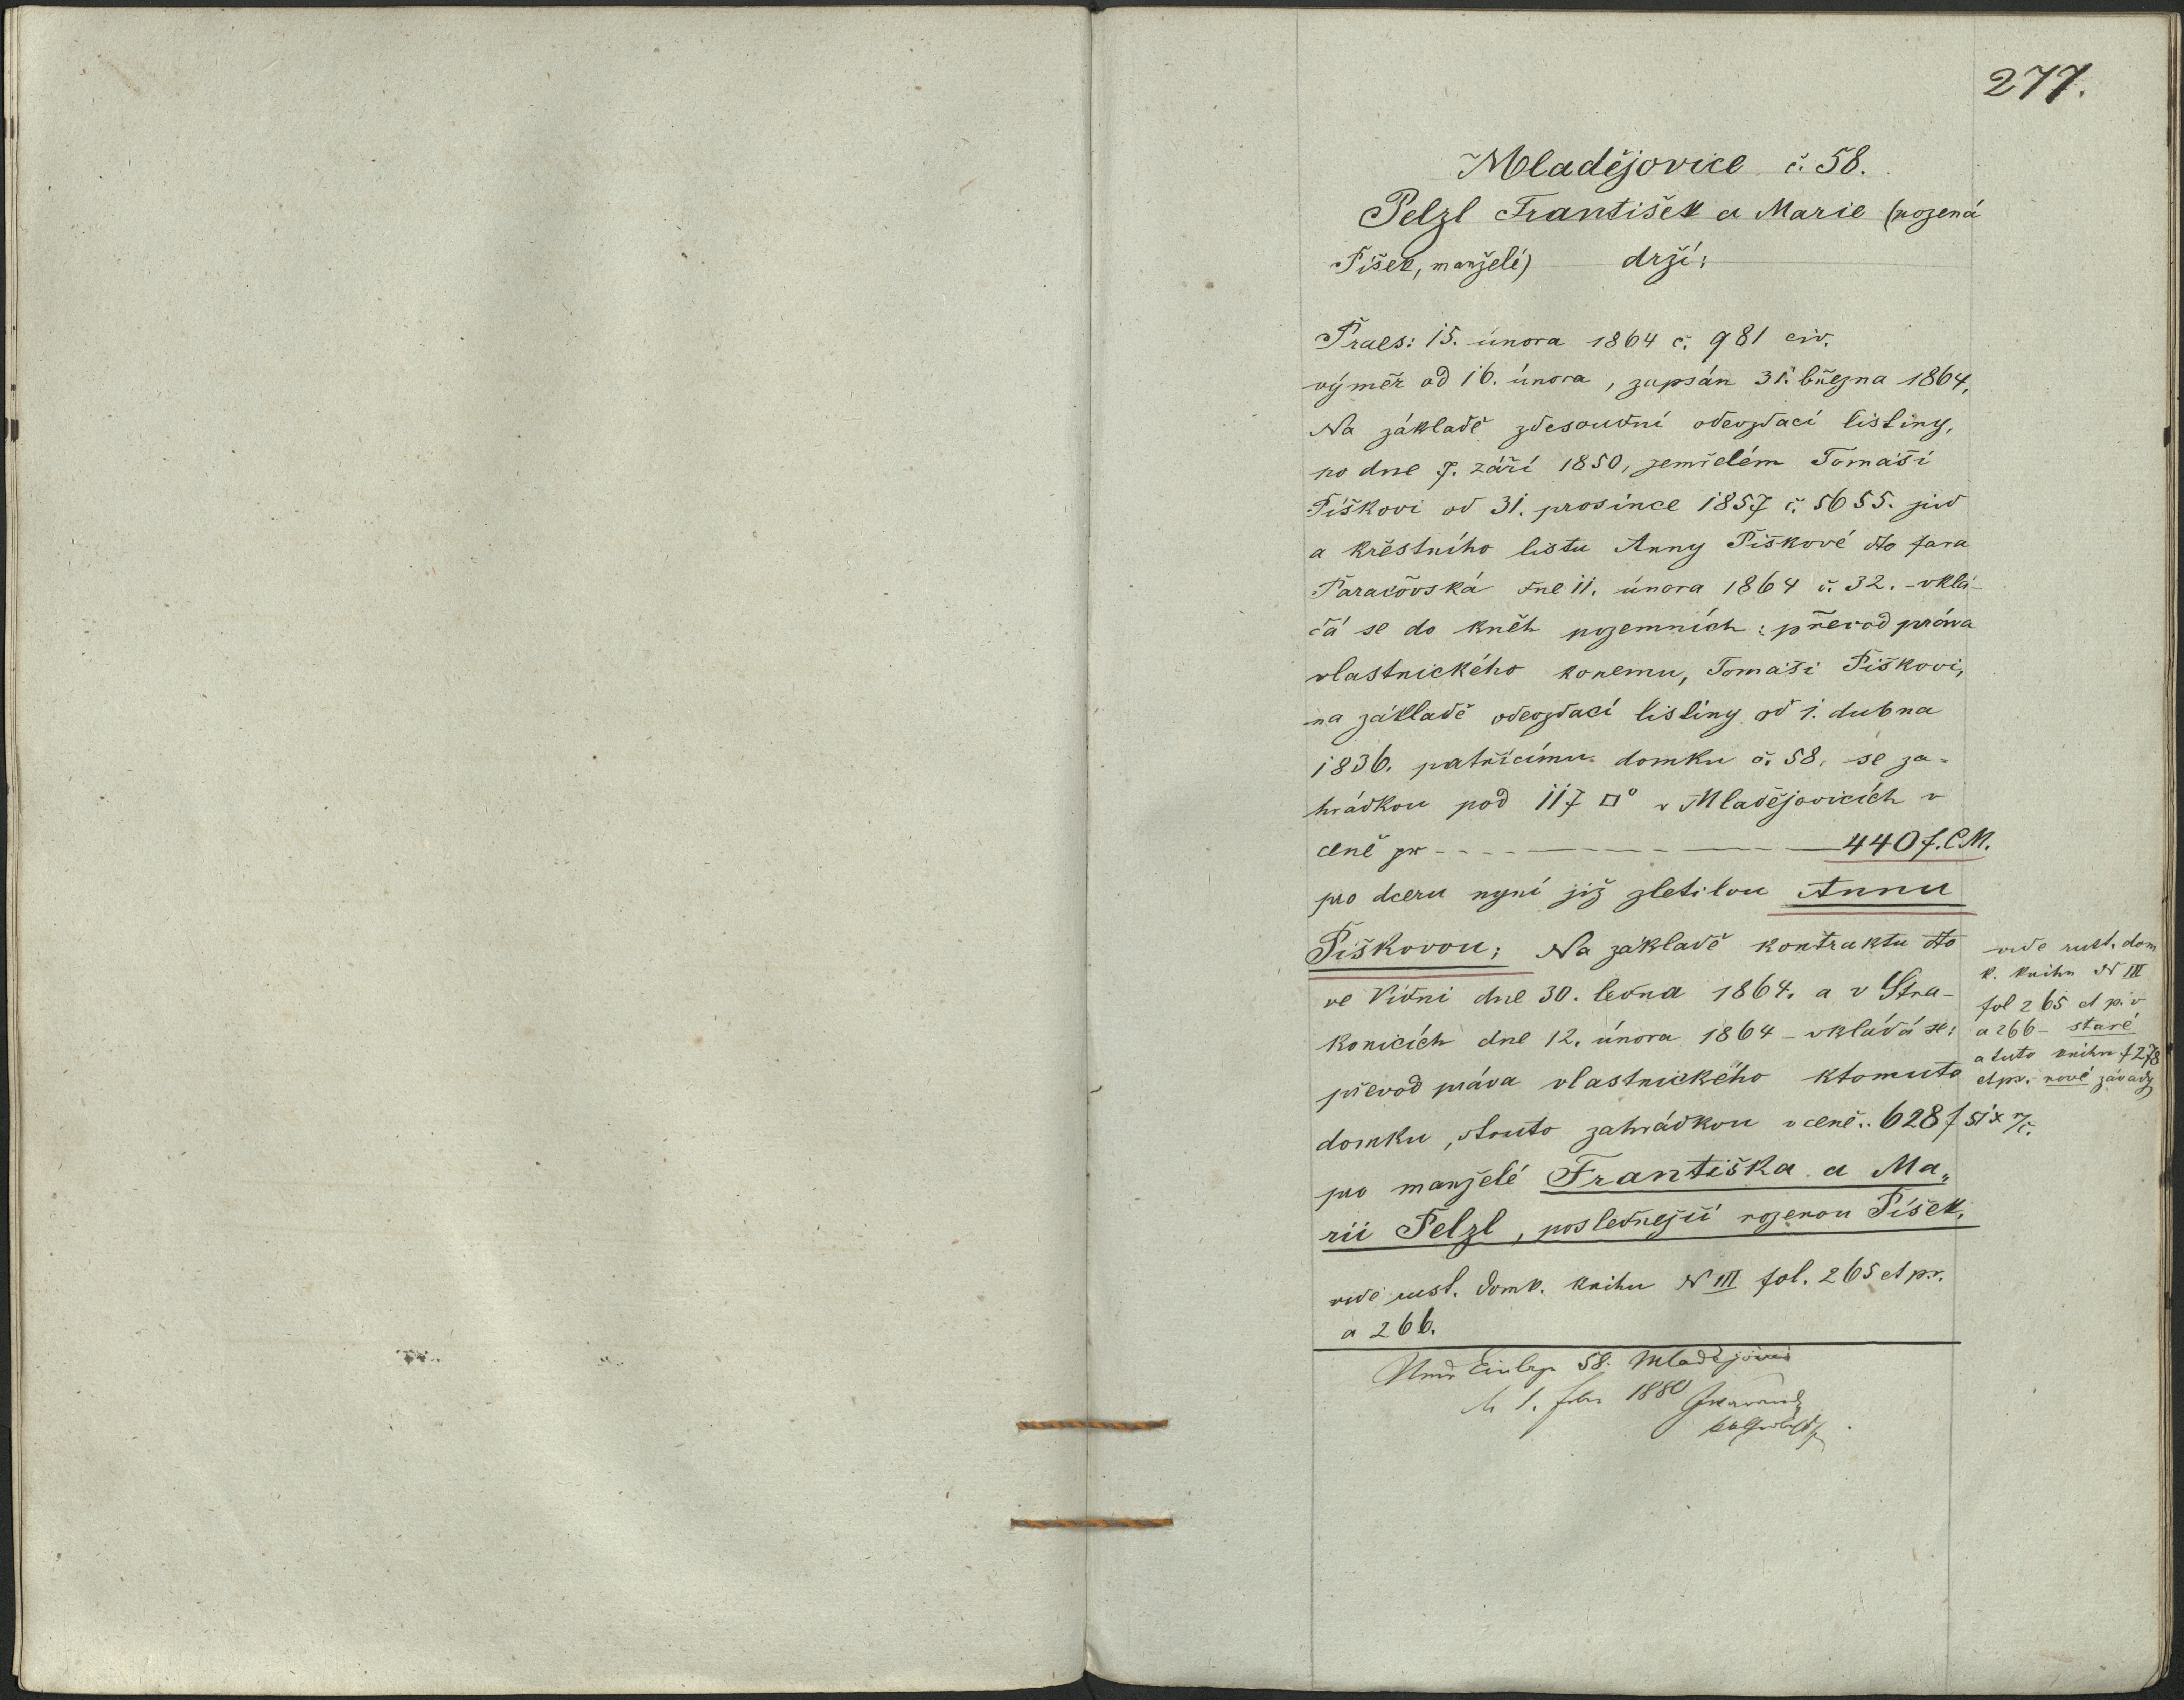 277.
Mladějovice č. 58.
Pelzl František a Marie (rozená
Píšek, manželé) drží:
Praes: 15. února 1864 č. 981 civ.
výměr od 16. února, zapsán 31. března 1864,
Na základě zdesoudní odevzdací listiny,
po dne 7. září 1850, zemřelém Tomáši
Piškovi od 31. prosince 1857 č. 5655. jud
a křestního listu Anny Piškové dto fara
Paračovská dne 11. února 1864 č. 32. - vklá-
dá se do kněh pozemních: převod práva
vlastnického konemu, Tomáši Piškovi,
na základě odevzdací listiny od 1. dubna
1836. patřícímu domku č. 58, se za-
hrádkou pod 117 □° v Mladějovicích v
ceně pr 440 f. C.M.
pro dceru nyní již zletilou Annu
Piškovou; Na základě kontraktu dto
ve Vídni dne 30. ledna 1864. a v Stra-
konicích dne 12. února 1864 - vkládá se:
převod práva vlastnického ktomuto
domku, stouto zahrádkou v ceně.. 628 f 51 x r/č.
pro manželé Františka a Ma„
rii Pelzl, poslednější rozenou Píšek.
vide rust. domk. knihu N III fol. 265 et p.v.
a 266.
vide rust. dom
k. knihu N III
fol 265 et p. v
a 266 - staré
a tuto knihu f 278
et pv. nové závady
58. Mladějovic
1. 1880